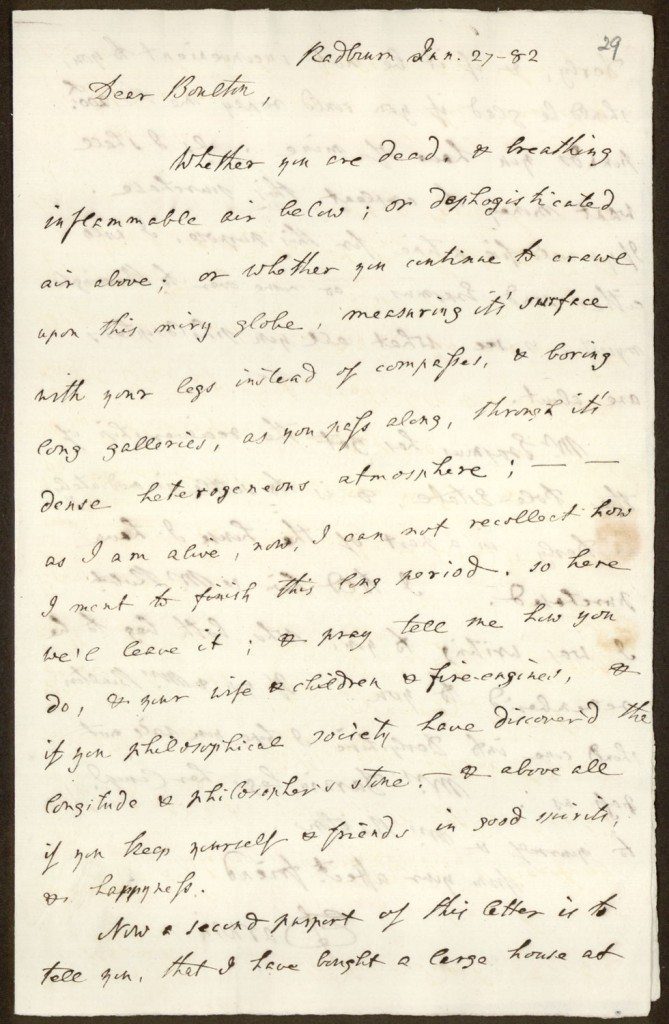 29
Radburn Jan. 27-82
Dear Boulton,
Whether you are dead, & breathing
inflammable air below; or dephlogisticated
air above; or whether you continue to crawl
upon this miry globe, measuring it's surface
with your legs instead of compasses, & boring
long galleries, as you pass along, through it's
dense heterogeneous atmosphere; — —
as I am alive, now, I can not recollect how
I ment to finish this long period. so here
we'l leave it; & pray tell me how you
do, & your wife & children & fire-engines, &
if you philosophical society have discover'd the
longitude & philosopher's stone. — & above all
if you keep yourself & friends in good spirits,
& happyness.
Now a second purport of this letter is to
tell you, that I have bought a large house at